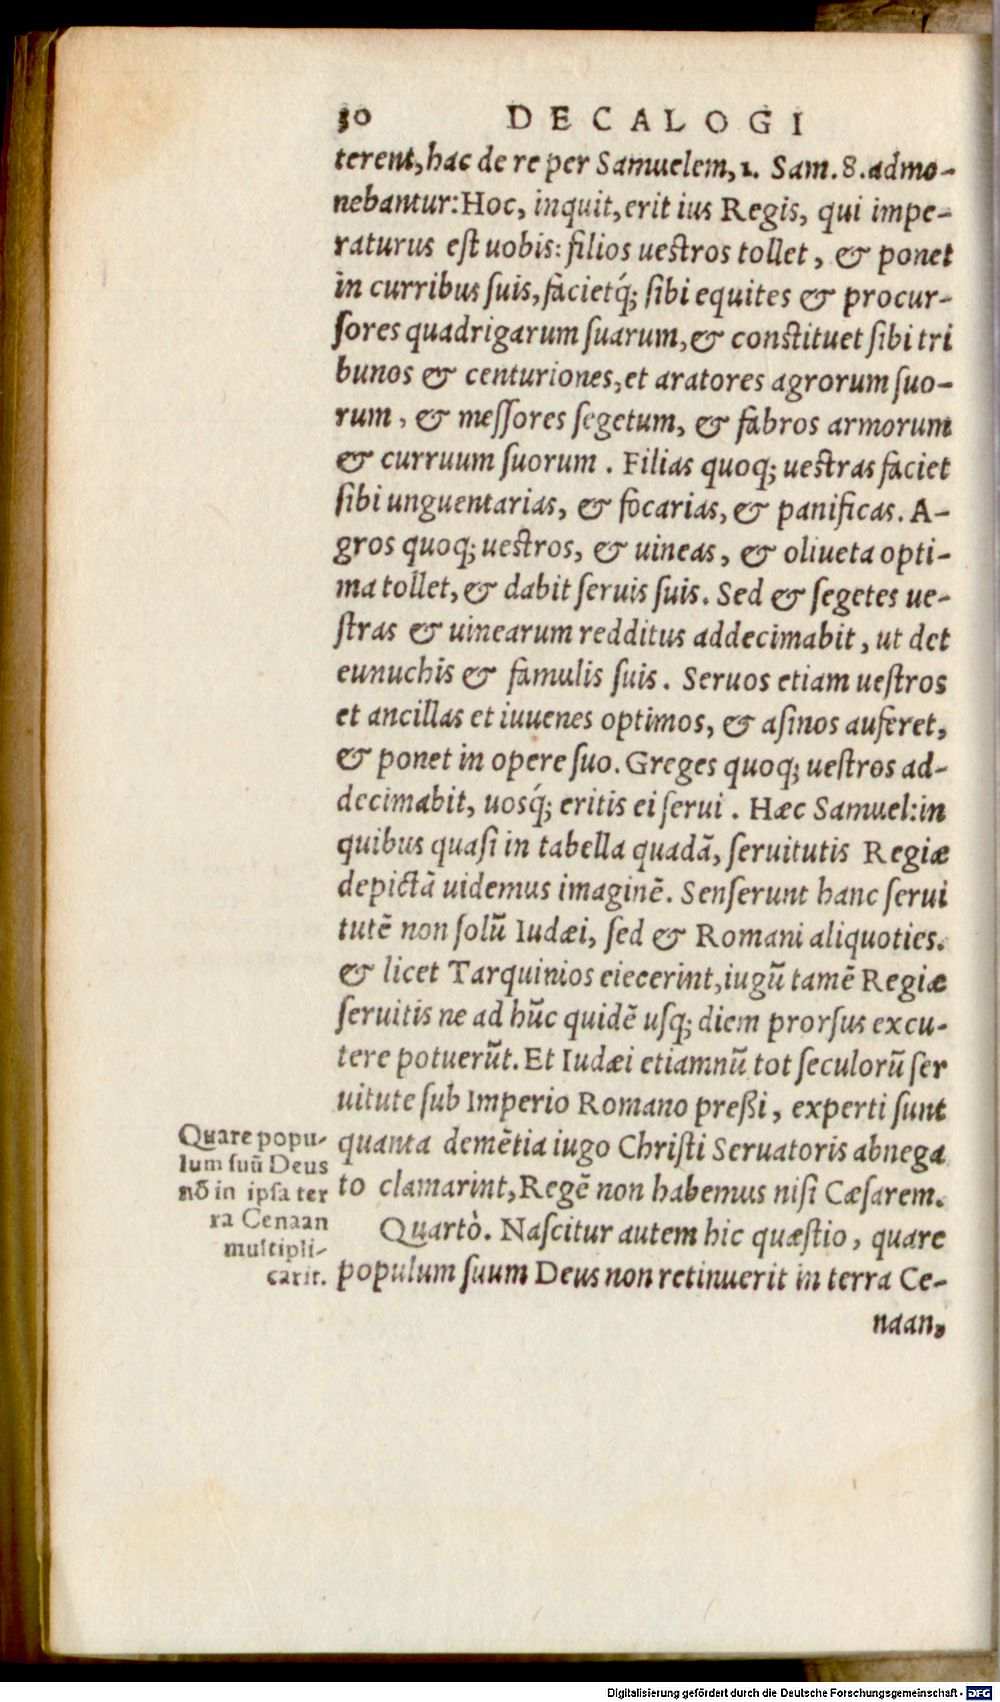 30 DECALOGI
terent, hac de re per Samuelem, 1. Sam. 8. admo-
nebantur: Hoc, inquit, erit ius Regis, qui impe-
raturus est uobis: filios uestros tollet, & ponet
in curribus suis, facietq́; sibi equites & procur-
sores quadrigarum suarum, & constituet sibi tri
bunos & centuriones, et aratores agrorum suo-
rum, & messores segetum, & fabros armorum
& curruum suorum. Filias quoq; uestras faciet
sibi unguentarias, & focarias, & panificas. A-
gros quoq; uestros, & uineas, & oliueta opti-
ma tollet, & dabit seruis suis. Sed & segetes ue-
stras & uinearum redditus addecimabit, ut det
eunuchis & famulis suis. Seruos etiam uestros
et ancillas et iuuenes optimos, & asinos auferet,
& ponet in opere suo. Greges quoq; uestros ad-
decimabit, uosq́; eritis ei serui. Hæc Samuel: in
quibus quasi in tabella quadã, seruitutis Regiæ
depictã uidemus imaginẽ. Senserunt hanc serui
tutẽ non solũ Iudæi, sed & Romani aliquoties.
& licet Tarquinios eiecerint, iugũ tamẽ Regiæ
seruitis ne ad hũc quidẽ usq; diem prorsus excu-
tere potuerũt. Et Iudæi etiamnũ tot seculorũ ser
uitute sub Imperio Romano preßi, experti sunt
quanta demẽtia iugo Christi Seruatoris abnega
to clamarint, Regẽ non habemus nisi Cæsarem.
Quare popu-
lum suũ Deus
nõ in ipsa ter
ra Cenaan
multipli-
carit.
Quartò. Nascitur autem hic quæstio, quare
populum suum Deus non retinuerit in terra Ce-
naan,
Digitalisierung gefördert durch die Deutsche Forschungsgemeinschaft - DFG